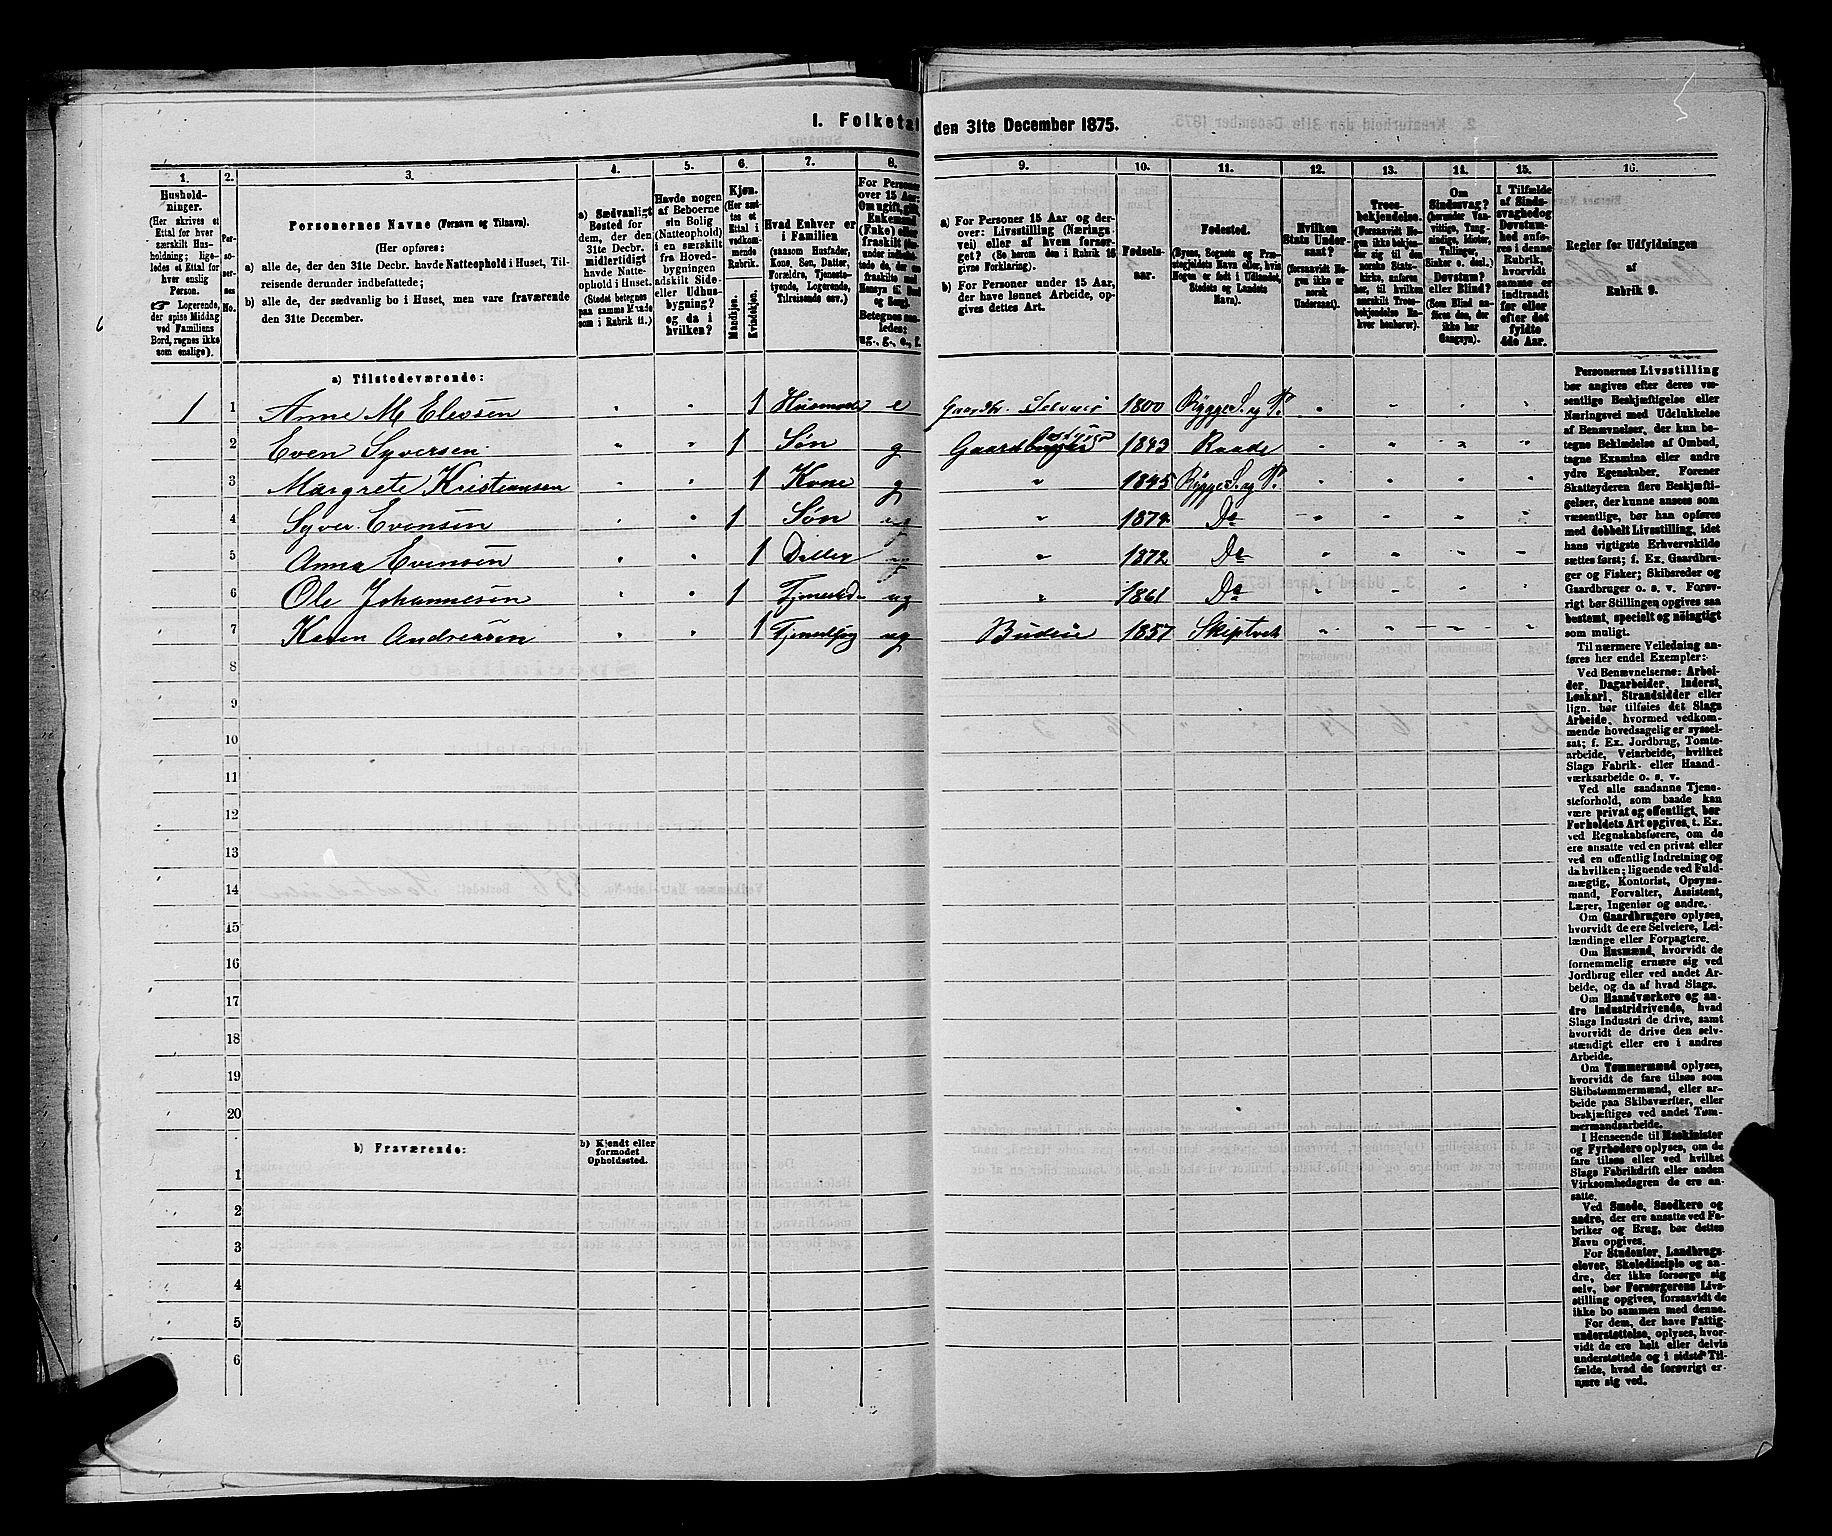 I. Folketal den 31te December 1875.
1. 2. 3. 4. 5. 6. 7. 8. 9. 10. 11. 12. 13. 14. 15. 16.
Hushold-
ninger.
(Her skrives et
Ettal for hver
særskilt Hus-
holdning; lige-
ledes et Ettal for
hver enslig
Person.
☞ Logerende,
der spise Middag
ved Familiens
Bord, regnes ikke
som enslige).
Per-
so-
ner-
nes
No.
Personernes Navne (Fornavn og Tilnavn).
(Her opføres:
a) alle de, der den 31te Decbr. havde Natteophold i Huset, Til-
reisende derunder indbefattede;
b) alle de, der sædvanlig bo i Huset, men vare fraværende
den 31te December.
a) Sædvanligt
Bosted for
dem, der den
31te Decbr.
midlertidigt
havde Natte-
ophold i Huset.
(Stedet betegnes
paa samme Maade
som i Rubrik 11.)
Havde nogen
af Beboerne
sin Bolig
(Natteophold)
i en særskilt
fra Hoved-
bygningen
adskilt Side-
eller Udhus-
bygning?
og da i
hvilken?
Kjøn.
(Her sæt-
tes et
Ettal i
vedkom-
mende
Rubrik.
Mandkjøn.
Kvindekjøn.
Hvad Enhver er
i Familien
(saasom Husfader,
Kone, Søn, Datter,
Forældre, Tjeneste-
tyende, Logerende,
Tilreisende osv.)
For Personer
over 15 Aar:
Om ugift, gift,
Enkemand
(Enke) eller
fraskilt
Betegnes saa-
ledes:
ug., g., e., f.
a) For Personer 15 Aar og der-
over: Livsstilling (Nærings-
vei) eller af hvem forsør-
get? (Se herom den i Rubrik 16
givne Forklaring).
b) For Personer under 15 Aar,
der have lønnet Arbeide, op-
gives dettes Art.
Fødsels-
aar.
Fødested.
(Byens, Sognets og Præ-
stegjeldets Navn eller, hvis
Nogen er født i Udlandet,
Stedets og Landets
Navn).
Hvilken
Stats Under-
saat?
(forsaavidt No-
gen ikke er
norsk
Undersaat).
Troes-
bekjendelse.
(Forsaavidt No-
gen ikke bekjen-
der sig til den
norske Stats-
kirke, anføres
her, til hvilken
særskilt Troes-
bekjendelse En-
hver henhører).
Om
Sindssvag?
(herunder Van-
vittige, Tung-
sindige, Idioter,
Tullinger,
Sinker o. desl.)
Døvstum?
eller Blind?
(Som Blind an-
føres den, der
ikke har
Gangsyn).
I Tilfælde
af Sinds-
svaghed og
Døvstum-
hed anfø-
res i denne
Rubrik,
hvorvidt
samme er
indtraadt
før eller
efter det
fyldte
4de Aar.
Regler for Udfyldningen
af
Rubrik 9.
a) Tilstedeværende:
1 1 Anne M Elessen 1 Husmod e Gaardbr. Selveier 1800 Rygge S. og P.
2 Even Syversen 1 Søn g Gaardbruger 1843 Raade
3 Margrete Kristiansen 1 Kone g " 1845 Rygge S. og P.
4 Syver Evensen 1 Søn ug " 1874 Do
5 Anna Evensen 1 Datter ug " 1872 Do
6 Ole Johannesen 1 ug " 1861 Do
7 Karen Andreasen 1 ug Budeie 1857 Skiptvet
8
9
10
11
12
13
14
15
16
17
18
19
20
b) Fraværende:
b) Kjendt eller
formodet
Opholdssted.
1
2
3
4
5
6
Personernes Livsstilling
bør angives efter deres væ-
sentlige Beskjæftigelse eller
Næringsvei med Udelukkelse
af Benævnelser, der kun be-
tegne Beklædelse af Ombud,
tagne Examina eller andre
ydre Egenskaber. Forener
Skatteyderen flere Beskjæfti-
gelser, der kunne ansees som
væsentlige, bør han opføres
med dobbelt Livsstilling, idet
hans vigtigste Erhvervskilde
sættes først; f. Ex. Gaardbru-
ger og Fisker; Skibsreder og
Gaardbruger o. s. v. Forøv-
rigt bør Stillingen opgives saa
bestemt, specielt og nøiagtigt
som muligt.
Til nærmere Veiledning an-
føres her endel Exempler:
Ved Benævnelserne: Arbei-
der, Dagarbeider, Inderst,
Løskarl, Strandsidder eller
lign. bør tilføies det Slags
Arbeide, hvormed vedkom-
mende hovedsagelig er syssel-
sat; f. Ex. Jordbrug, Tomte-
arbeide, Veiarbeide, hvilket
Slags Fabrik- eller Haand-
værksarbeide o. s. v.
Ved alle saadanne Tjene-
steforhold, som baade kan
være privat og offentligt, bør
Forholdets Art opgives, t. Ex.
ved Regnskabsførere, om de
ere ansatte ved en privat eller
ved en offentlig Indretning og
da hvilken; lignende ved Fuld-
mægtig, Kontorist, Opsyns-
mand, Forvalter, Assistent,
Lærer, Ingeniør og andre.
Om Gaardbrugere oplyses,
hvorvidt de ere Selveiere, Lei-
lændinge eller Forpagtere.
Om Husmænd, hvorvidt de
fornemmelig ernære sig ved
Jordbrug eller ved andet Ar-
beide, og da af hvad Slags.
Om Haandværkere og an-
dre Industridrivende, hvad
Slags Industri de drive, samt
hvorvidt de drive den selv-
stændigt eller ere i andres
Arbeide.
Om Tømmermænd oplyses,
hvorvidt de fare tilsøs som
Skibstømmermænd, eller ar-
beide paa Skibsværfter, eller
beskjæftiges ved andet Tøm-
mermandsarbeide.
I Henseende til Maskinister
og Fyrbødere oplyses, om de
fare tilsøs eller ved hvilket
Slags Fabrikdrift eller anden
Virksomhedsgren de ere an-
satte.
Ved Smede, Snedkere og
andre, der ere ansatte ved Fa-
briker og Brug, bør dettes
Navn opgives.
For Studenter, Landbrugs-
elever, Skoledisciple og an-
dre, der ikke forsørge sig
selv, bør Forsørgerens Livs-
stilling opgives, forsaavidt de
ikke bo sammen med denne.
For dem, der have Fattig-
understøttelse, oplyses, hvor-
vidt de ere helt eller delvis
understøttede og i sidste Til-
fælde, hvad de forøvrigt er-
nære sig ved.